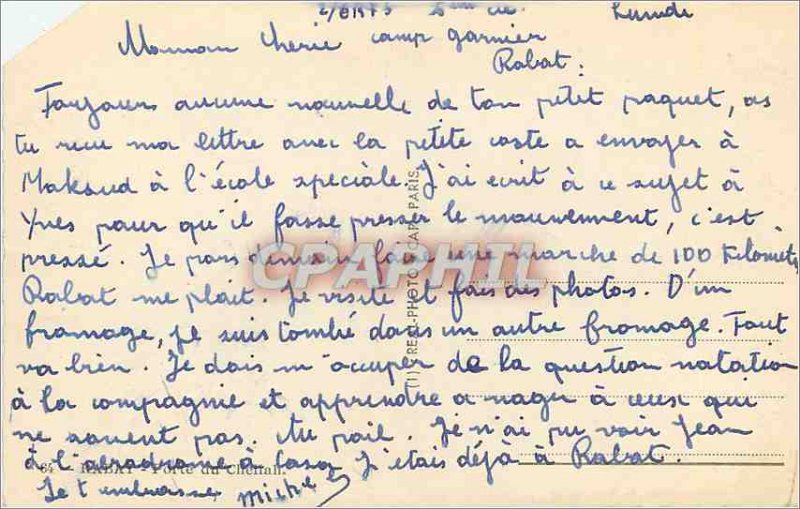 2/6RTS 2ème Cie Lundi
Maman Cherie camp garnier
Rabat:
Toujours aucune nouvelle de ton petit paquet, as
tu recu ma lettre avec la petite carte a envoyer à
Maksud à l'école spéciale. J'ai ecrit à ce sujet à
Yves pour qu'il fasse presser le mouvement, c'est
pressé. Je pars demain faire une marche de 100 kilomèt
Rabat me plait. Je visite et fais des photos. D'un
fromage, je suis tombé dans un autre fromage. Tout
va bien. Je dois m'occuper de la question natation
à la compagnie et apprendre a nager à ceux qui
ne savent pas. Au poil. Je n'ai pu voir Jean
à l'aerodrome à Casa J'etais déjà à Rabat.
Je t'embrasse Michel
64 RABAT - Porte du Chellah.
(I) REAL-PHOTO C.A.P. PARIS.
CPAPHIL